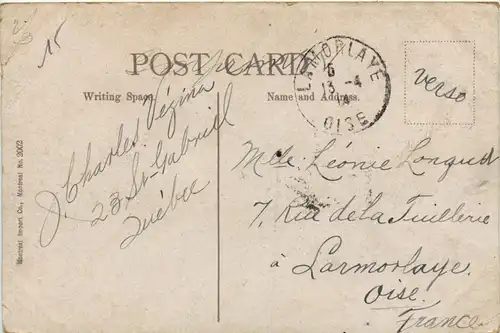 15
POST CARD
Writing Space.
Name and Address.
LAMORLAYE
6
13 -4
14
OISE
verso
J. Charles Vézina
23 St-Gabriel
Québec
Melle Léonie Longuet
7, Rue de la Tuillerie
à Larmorlaye.
Oise.
France
Montreal Import Co., Montreal No. 2002